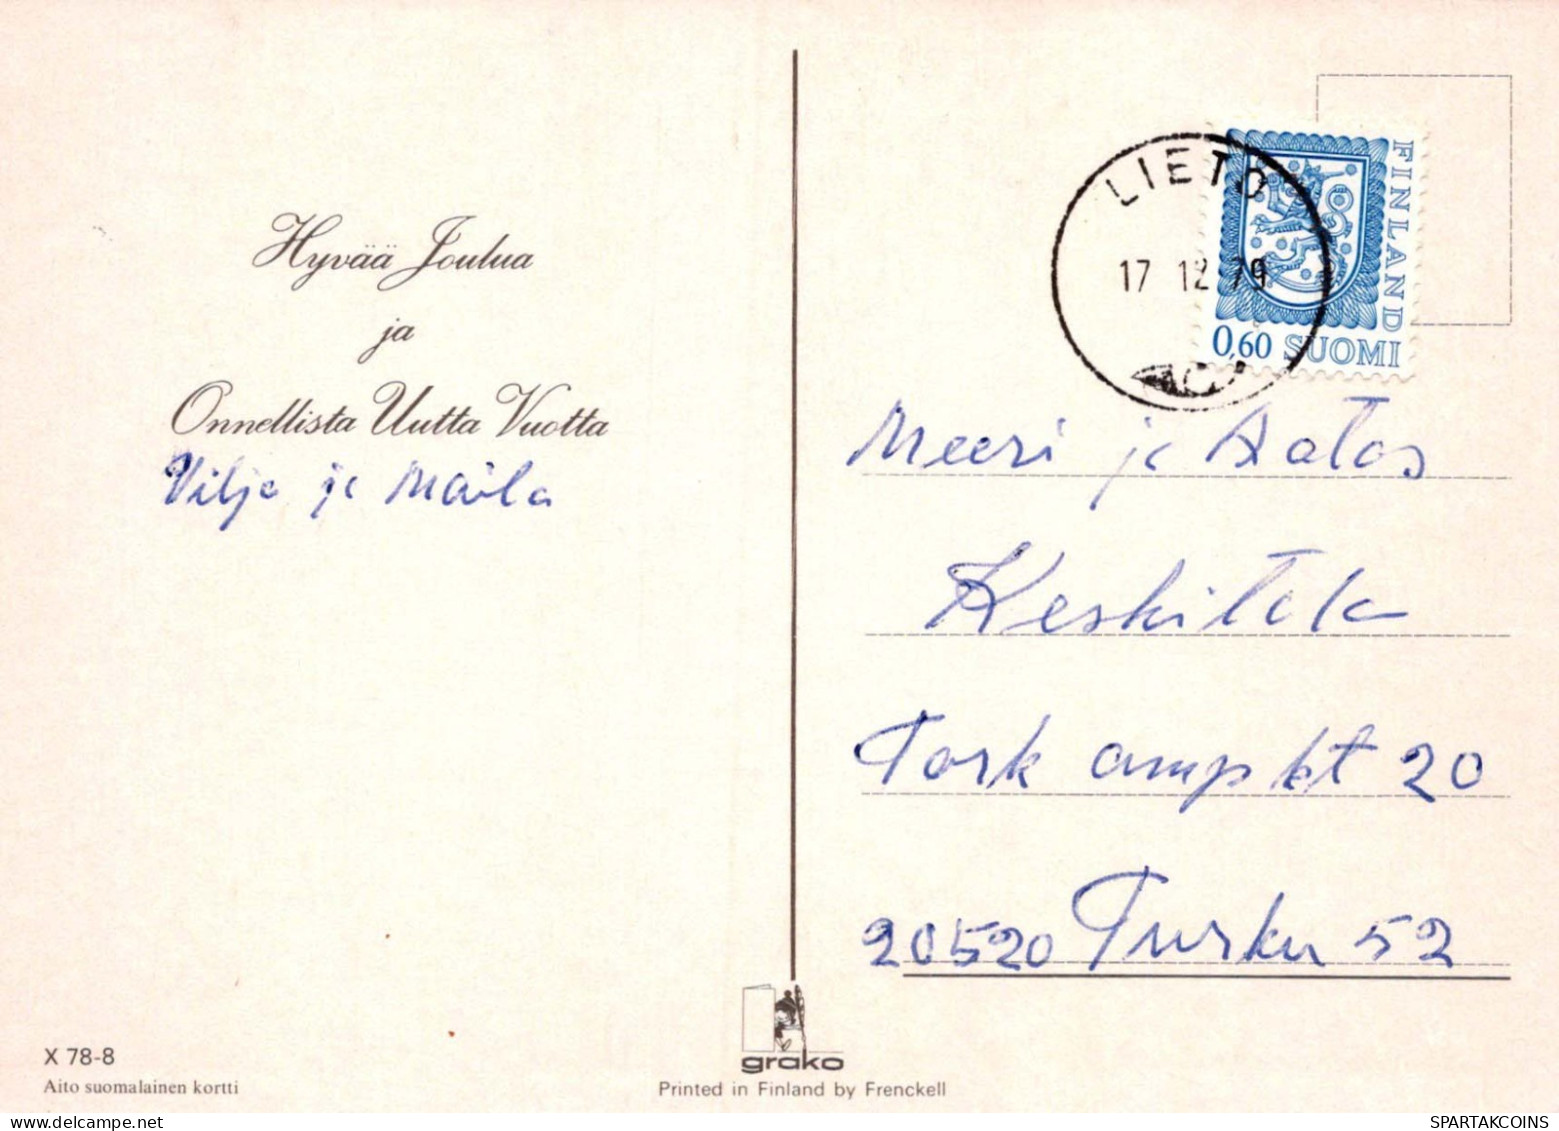 Hyvää Joulua
ja
Onnellista Uutta Vuotta
Vilja ja Maila
LIETO
17 12 79
FINLAND
0,60 SUOMI
Meeri ja Aatos
Keskitalo
Tork ampkt 20
20520 Turku 52
X 78-8
Aito suomalainen kortti
grako
Printed in Finland by Frenckell
SPARTAKCOINS